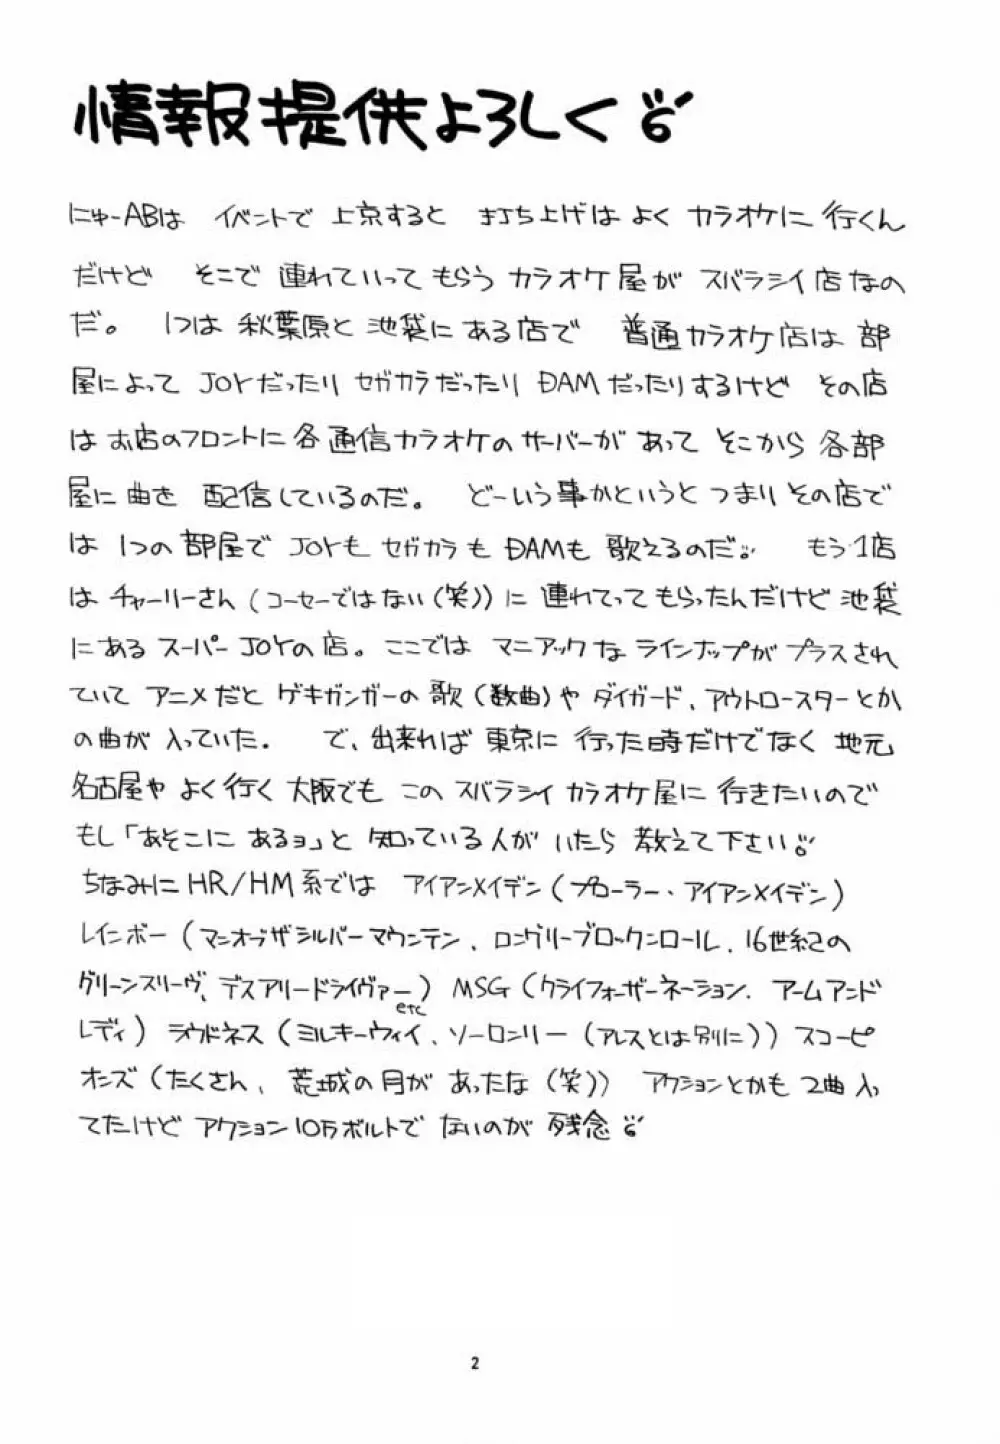 情報提供よろしく
にゅーABは イベントで 上京すると 打ち上げは よく カラオケに 行くん
だけど そこで 連れていって もらう カラオケ屋が スバラシイ店なの
だ。 1つは 秋葉原と 池袋に ある店で 普通カラオケ店は 部
屋によって JOYだったり セガカラだったり DAMだったりするけど その店
は お店のフロントに 各通信カラオケの サーバーが あって そこから 各部
屋に 曲を 配信しているのだ。 どーいう事かというと つまり その店で
は 1つの 部屋で JOYも セガカラも DAMも 歌えるのだ。 もう1店
は チャーリーさん (コーセーではない(笑)) に 連れてって もらったんだけど 池袋
にある スーパーJOYの店。 ここでは マニアックな ラインナップが プラスされ
ていて アニメだと ゲキガンガーの 歌 (数曲) や ダイガード、アウトロースターとか
の曲が 入っていた。 で、出来れば 東京に 行った時だけでなく 地元
名古屋や よく行く 大阪でも この スバラシイ カラオケ屋に 行きたいので
もし「あそこに あるョ」と 知っている人が いたら 教えて下さい。
ちなみに HR/HM系では アイアンメイデン (プローラー、アイアンメイデン)
レインボー (マンオブザシルバーマウンテン、ロングリーブロックンロール、16世紀の
グリーンスリーヴ、デスアリードライヴァー etc) MSG (クライフォーザーネーション、アームアンド
レディ) ラウドネス (ミルキーウェイ、ソーロンリー (アレスとは別に)) スコーピ
オンズ (たくさん、荒城の月が あったな (笑)) アクションとかも 2曲 入っ
てたけど アクション10万ボルトで ないのが 残念
2